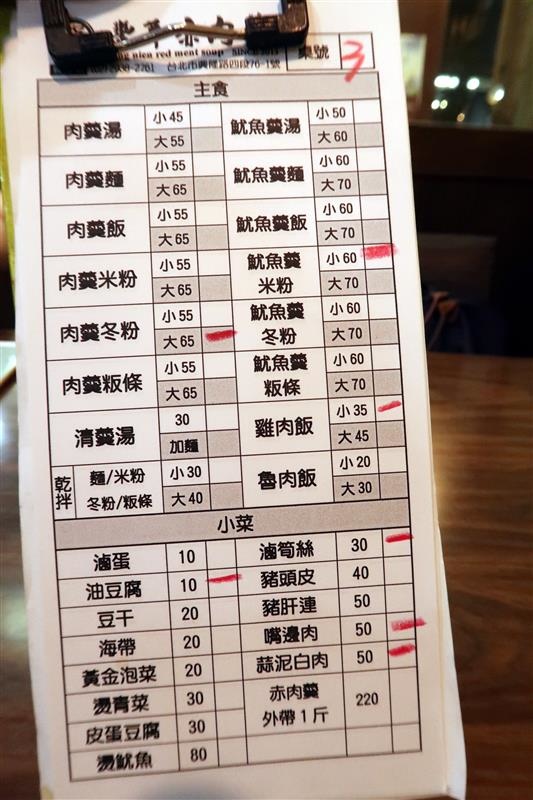 nien red ment soup SINCE 2013
2938-2761 台北市興隆路四段76-1號
桌號 3
主食
肉羹湯 小 45 魷魚羹湯 小 50
大 55 大 60
肉羹麵 小 55 魷魚羹麵 小 60
大 65 大 70
肉羹飯 小 55 魷魚羹飯 小 60
大 65 大 70
肉羹米粉 小 55 魷魚羹米粉 小 60
大 65 大 70
肉羹冬粉 小 55 魷魚羹冬粉 小 60
大 65 大 70
肉羹粄條 小 55 魷魚羹粄條 小 60
大 65 大 70
清羹湯 30 雞肉飯 小 35
加麵 大 45
乾拌 麵/米粉 小 30 魯肉飯 小 20
冬粉/粄條 大 40 大 30
小菜
滷蛋 10 滷筍絲 30
油豆腐 10 豬頭皮 40
豆干 20 豬肝連 50
海帶 20 嘴邊肉 50
黃金泡菜 20 蒜泥白肉 50
燙青菜 30 赤肉羹
皮蛋豆腐 30 外帶1斤 220
燙魷魚 80